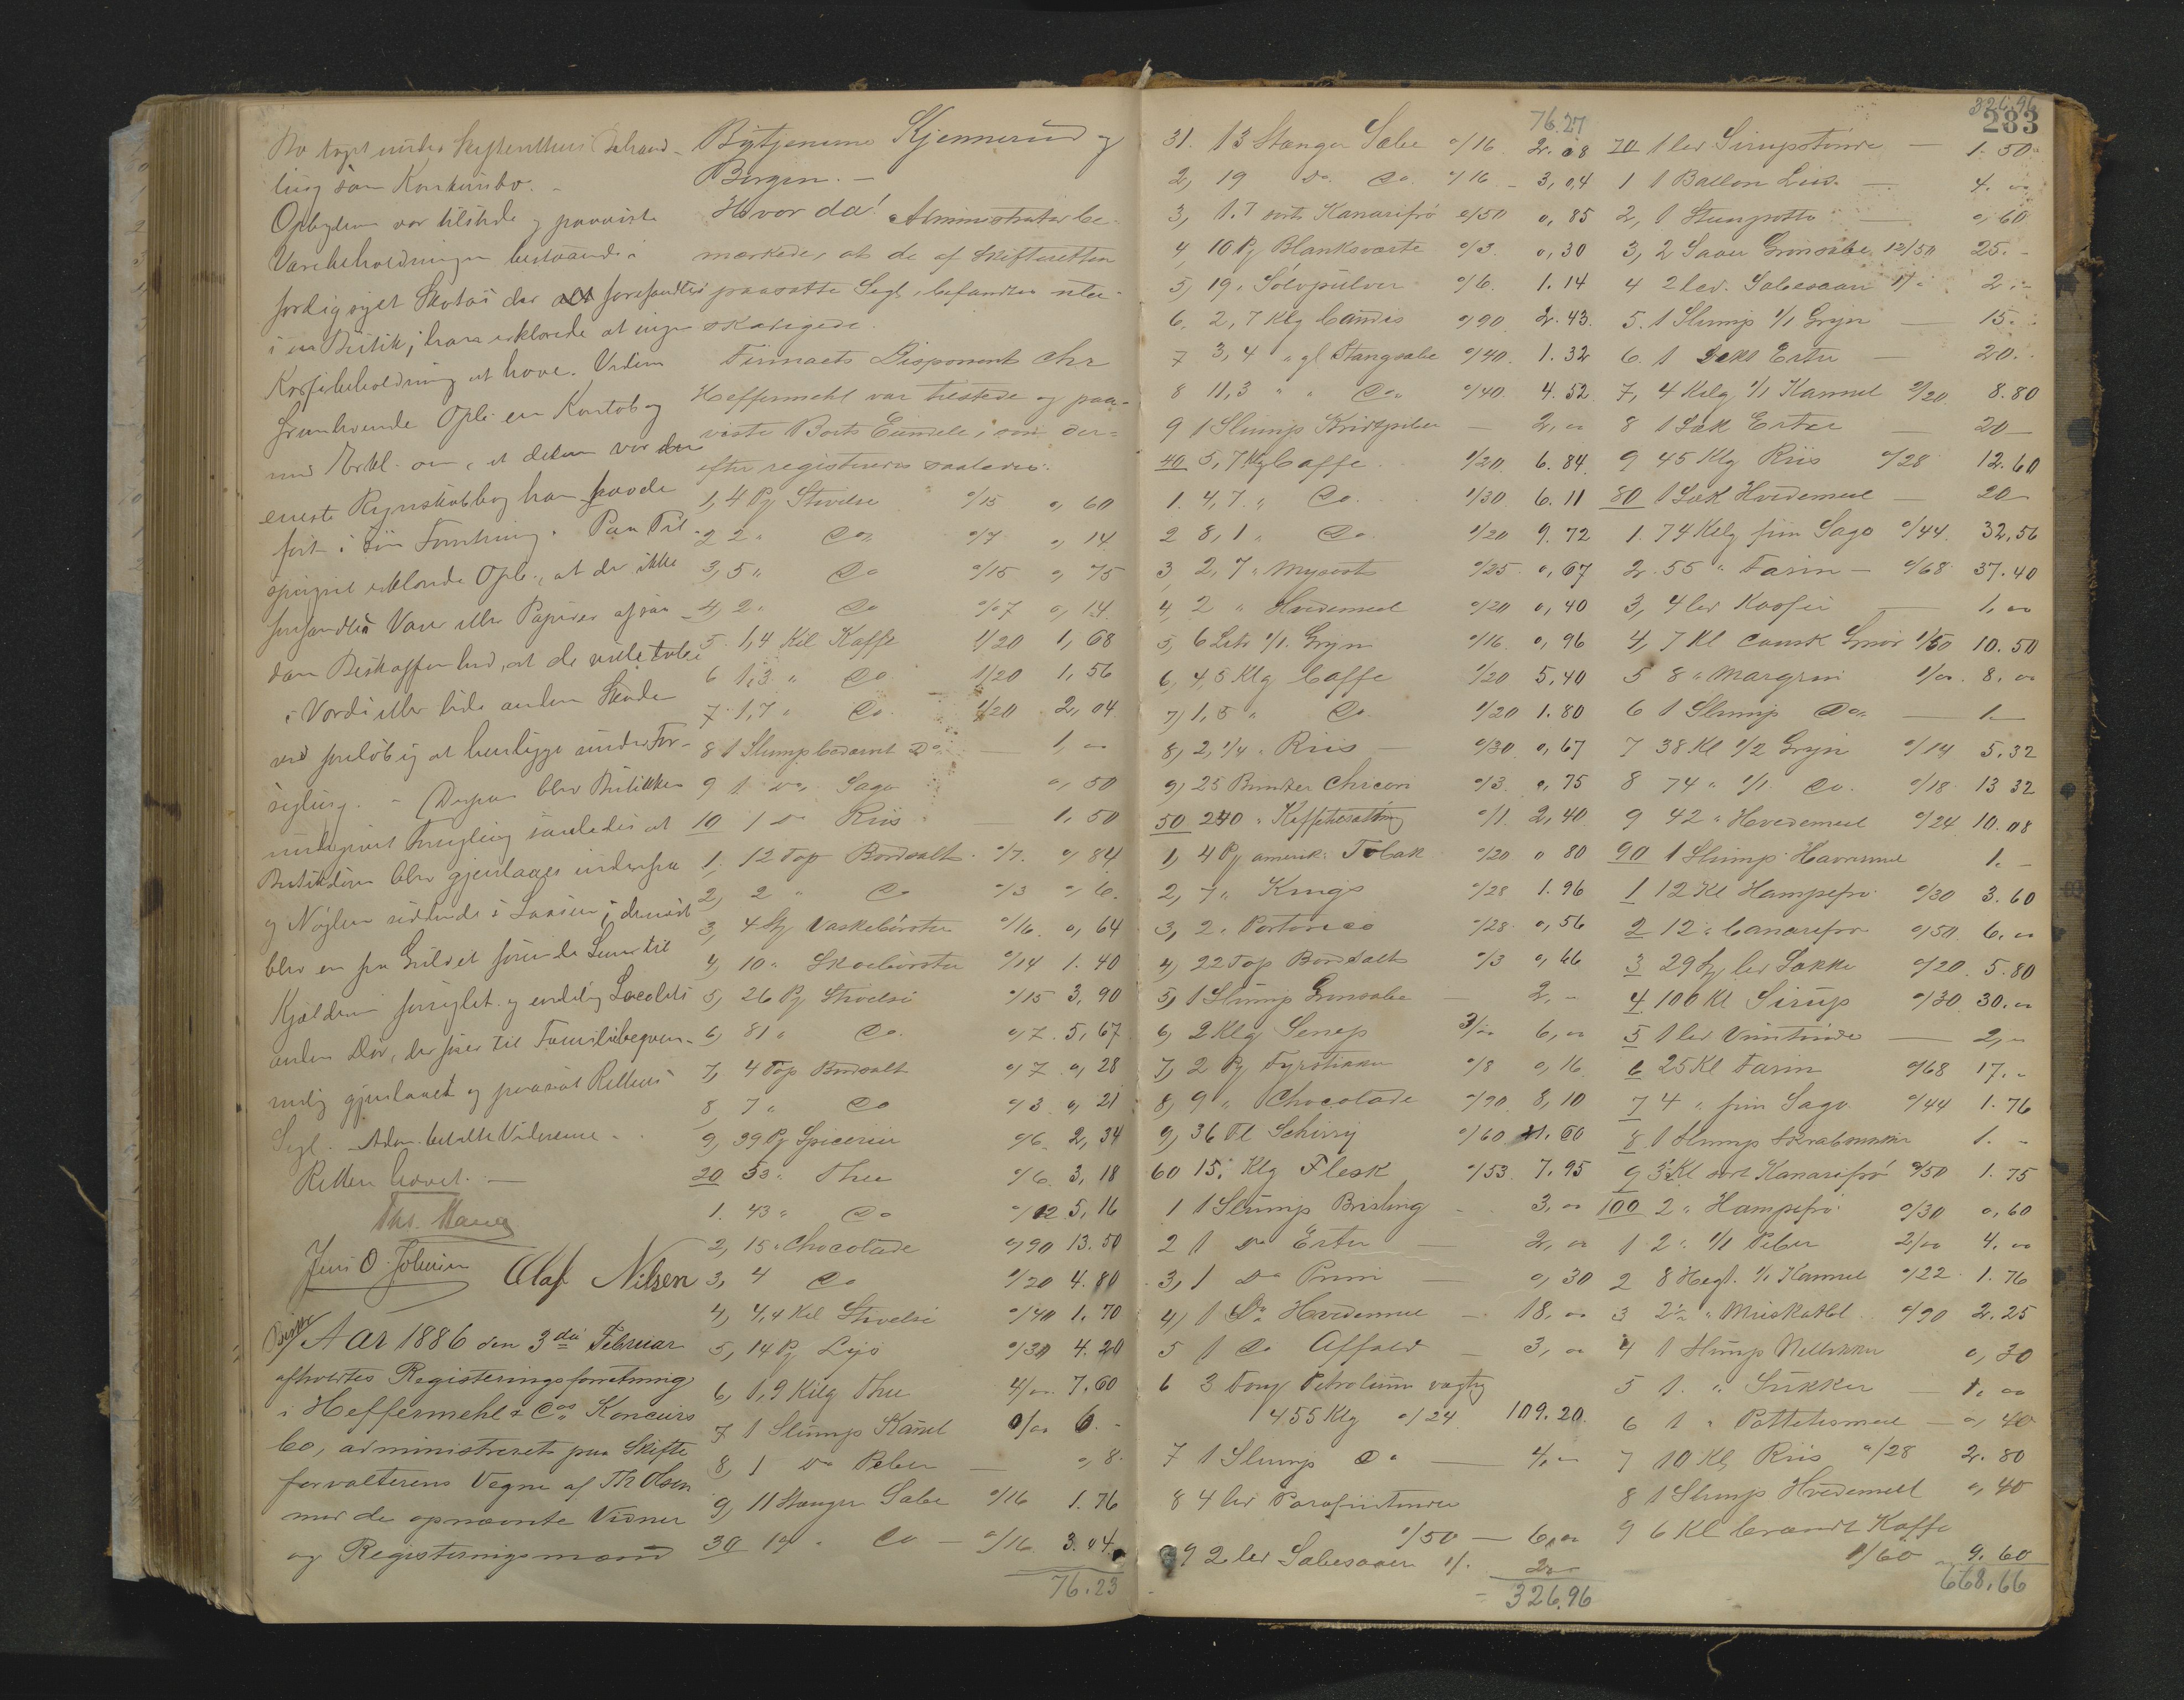 Bo tagt under Skifterettens Behand-
ling som Konkursbo. -
Opbyderen var tilstede og paaviste
Varebeholdningen bestaaende i
færdigsyet Skotøi der alt forefandtes
i en Butik; han erklærede at ingen
Kassebeholdning at have. Videre
fremlevende Opb. en Kontobog
med Erkl. om, at denne var den
eneste Regnskabsbog han havde
ført i sin Forretning. Paa Til-
spørgsel erklærede Opb., at der ikke
forefandtes Varer eller Papirer af saa-
dan Beskaffenhed, at de vilde tabe
i Værdi eller lide anden Skade
ved foreløbig at henligge under For-
segling. - Derpaa blev Butikken
undergivet Forsegling saaledes at
Butikdøren blev gjenlaaset indenfra
og Nøglen siddende i Laasen; dernæst
blev en fra Gulvet førende Lem til
Kjælderen forseglet og endelig Localets
anden Dør, der fører til Familiebeqvem-
melig gjenlaaset og paasat Rettens
Segl. Adm. betalte Vidnerne.
Retten hævet. -
Ths. Maug
Jens O. Johnsen Olaf Nilsen
Aar 1886 den 3die Februar
afholdtes Registeringsforretning
i Heffermehl & Cos Koncurs
bo, administreret paa Skifte
forvalterens Vegne af Th Olsen
med de opnævnte Vidner
og Registeringsmænd
Bytjenerne Kjennerud og
Borgen. -
Hvor da! Administrator be-
mærkede, at de af Skifteretten
paasatte Segl, befandtes ube-
skadigede.
Firmaets Disponent Chr
Heffermehl var tilstede og paa-
viste Boets Eiendele, som der-
efter registreres saaledes:
1, 4 Pj Stivelse 0/15 0, 60
2 2 " Do 0/7 0, 14
3, 5 " Do 0/15 0, 75
4, 2 " Do 0/07 0, 14
5 1,4 Kil Kaffe 1/20 1, 68
6 1,3 " Do 1/20 1, 56
7 1,7 " Do 1/20 2, 04
8 1 Slump Do — 1, 00
9 1 Do Sago 0, 50
10 1 Do Riis — 1, 50
1. 12 Top Bordsalt 0/7. 0, 84
2, 2 " Do 0/3 0, 6.
3, 4 St Vaskebörster 0/16. 0, 64
4, 10 " Skoebörster 0/14 1. 40
5, 26 Pj Stivelse 0/15 3, 90
6, 81 " Do. 0/7. 5, 67
7, 4 Top Bordsalt 0/7. 0, 28
8, 7 " Do 0/3 0, 21
9, 39 Pj Spicerier 0/6. 2, 34
20 53 " Thee 0/6. 3, 18
1. 43 " Do 0/12 5, 16
2, 15 " Chocolade 0/90 13. 50
3, 4 Do 1/20 4. 80
4, 4,4 Kil Stivelse 0/40 1. 70
5, 14 Pj Lys 0/30 4. 20
6, 1,9 Kilg Thee 4/00 7. 60
7 1 Slump Kanel 0/00 6. -
8, 1 Do Peber — 0, 8.
9, 11 Stænger Sæbe 0/16 1. 76
30 19 " Do - 0/16 3. 04.
76.23
76.27
31. 13 Stænger Sæbe 0/16 2. 08
2, 19 Do. Do. 0/16 - 3, 04
3, 1.7 sort Kanarifrö 0/50 0, 85
4, 10 Pj Blanksværte 0/3. 0, 30
5, 19. Sölvpulver 0/6. 1. 14
6. 2, 7 Klg Candis 0/90 2. 43.
7 3, 4 " gl Stangsæbe 0/40. 1. 32
8 11,3 " " Do 0/40. 4. 52.
9 1 Slump Kridtpiber — 2, 00
40 5, 7 Klg Caffe. 1/20. 6. 84.
1. 4, 7. " Do. 1/30 6. 11
2 8, 1 " Do 1/20 9. 72
3, 2, 7 " Mysost 0/25. 0, 67
4, 2 " Hvedemeel 0/20 0, 40
5, 6 Liter 1/1. Gryn 0/16. 0, 96
6, 4,5 Klg Caffe 1/20 5, 40
7, 1, 5 " Do 1/20 1. 80
8, 2,1/4 " Riis — 0/30 0, 67
9, 25 Bundter Chicori 0/3. 0, 75
50 240 " Kaffetilsætning 0/1. 2, 40
1, 4 Pj amerik. Tobak 0/20 0 80
2, 7 " Krugs 0/28 1. 96
3, 2 " Portorico 0/28 0, 56
4, 22 Top Bordsalt 0/3 0, 66
5, 1 Slump Grönsæbe — 2, -
6, 2 Klg Senep 3/00 6, 00
7, 2 Pj Fyrstikker 0/8 0, 16.
8, 9 " Chocolade 0/90 8, 10
9, 36 Fl Scherry 0/60 21. 60
60 15. Klg Flesk 0/53 7. 95
1 1 Slump Brisling — 3, 00
2 1 Do Erter — 2, 00
3, 1 Do Prim — 0, 30
4, 1 Do Hvedemeel - 18, 00
5 1 Do Affald — 3, 00
6 3 Tong Petroleum vægtig
455 Klg 0/24 109. 20
7 1 Slump Do — 4, 00
8 4 led Parafintønder
1/50 — 6, 00
9 2 led Sæbesaaer 1/. 2 00
326.96
326.96
283
70 1 led Sirupstönde — 1. 50.
1 1 Ballon — 4. 00
2, 1 Steenpotte — 0, 60
3, 2 Saaer Grönsæbe 12/50 25. -
4 2 led. Sæbesaaer 1/- 2. -
5. 1 Slump 1/1 Gryn — 15. -
6. 1 Sæk Erter — 20. -
7, 4 Kilg 1/1 Kannel 2/20. 8. 80
8 1 Sæk Erter — 20 —
9 45 Klg Riis 0/28 12. 60
80 1 Sæk Hvidemeel — 20 -
1. 74 Kilg fiin Sago 0/44. 32, 56
2. 55 " Farin - 0/68. 37. 40
3, 4 led Kasser — 1, 00
4, 7 Kl Dansk Smör 1/50 10. 50
5 8 " Margrin 1/00. 8. 00
6 1 Slump Do — 1 —
7 38 Kl 1/2 Gryn 0/14 5. 32
8 74 " 1/1 Do. 0/18 13 32
9 42 " Hvedemeel 0/24 10. 08
90 1 Slump Havremeel 1. -
1 12 Kl Hampefrö 0/30 3. 60
2 12 " Canarifrö 0/50 6. 00
3 29 St led Sække 0/20. 5. 80
4 100 Kl Sirup 0/30 30. 00
5 1 led Viintönde — 2, 00
6 25 Kl Farin 0/68 17. -
7 4 " fiin Sago 0/44 1. 76
8 1 Slump 1. -
9 3½ Kl sort Kanarifrö 0/50 1. 75
100 2 " Hampefrö 0/30 0, 60
1 2 " 1/1 Peber 2/00 4. 00
2 8 Hegt. 1/1 Kannel 0/22 1. 76
3 2½ " Muskatbl 0/90 2. 25
4 1 Slump Nelliker 0, 30
5 1. " Sukker — 1. 00
6 1 " Pottetesmeel — 0, 40
7 10 Kl Riis 0/28 2. 80
8 1 Slump Hvedemeel 0, 40
9 6 Kl brændt Kaffe
1/60 9. 60
668,66